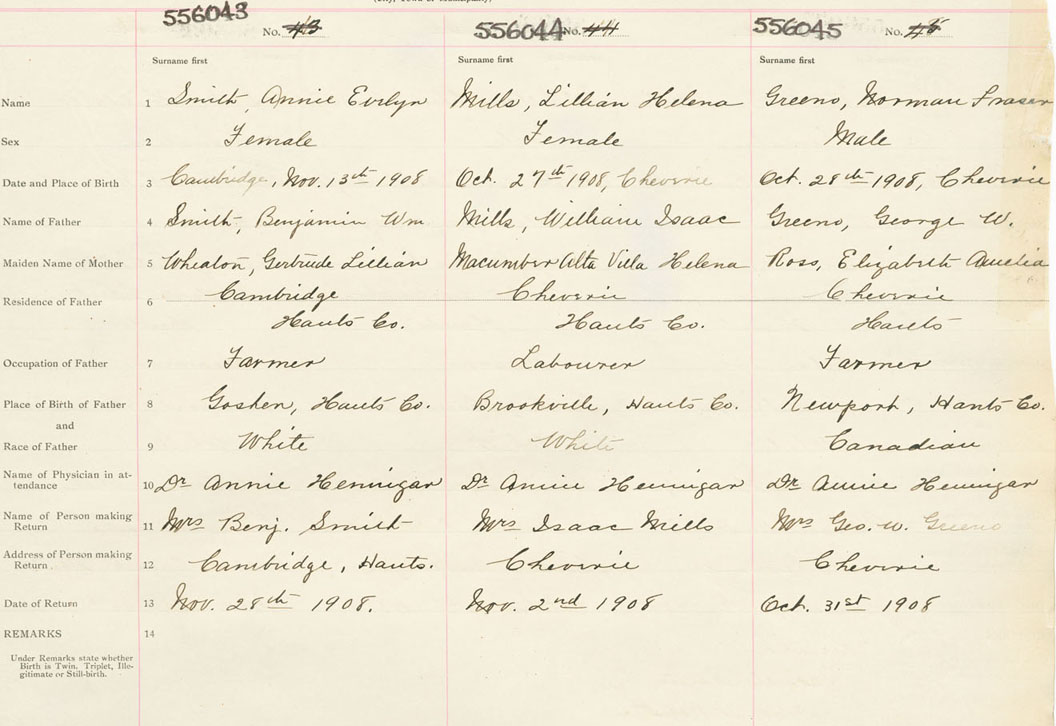 556043 556044 556045
No. 43 No. 44 No. 45
Surname first Surname first Surname first
Name 1 Smith, Annie Evelyn Mills, Lillian Helena Greeno, Norman Fraser
Sex 2 Female Female Male
Date and Place of Birth 3 Cambridge, Nov. 13th 1908 Oct. 27th 1908, Cheverie Oct. 28th 1908, Cheverie
Name of Father 4 Smith, Benjamin Wm Mills, William Isaac Greeno, George W.
Maiden Name of Mother 5 Wheaton, Gertrude Lillian Macumber Alta Villa Helena Ross, Elizabeth Amelia
Residence of Father 6 Cambridge Cheverie Cheverie
Hants Co. Hants Co. Hants
Occupation of Father 7 Farmer Labourer Farmer
Place of Birth of Father 8 Goshen, Hants Co. Brookville, Hants Co. Newport, Hants Co.
and
Race of Father 9 White White Canadian
Name of Physician in at-
tendance 10 Dr Annie Hennigar Dr Annie Hennigar Dr Annie Hennigar
Name of Person making
Return 11 Mrs Benj. Smith Mrs Isaac Mills Mrs Geo. W. Greeno
Address of Person making
Return. 12 Cambridge, Hants. Cheverie Cheverie
Date of Return 13 Nov. 28th 1908. Nov. 2nd 1908 Oct. 31st 1908
REMARKS 14
Under Remarks state whether
Birth is Twin. Triplet, Ille-
gitimate or Still-birth.